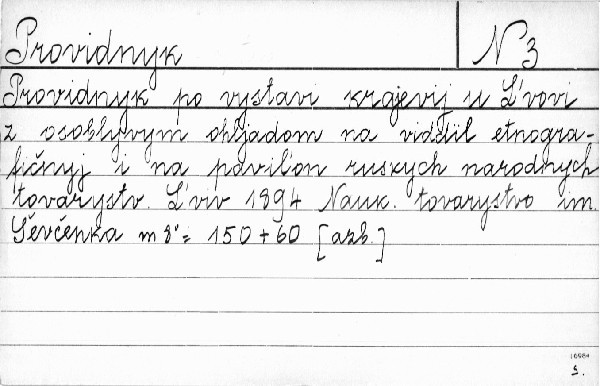 Providnyk N 3
Providnyk po vystavi krajevij u L'vovi
z osoblyvym ohljadom na viddil etnogra-
fičnyj i na pavil'on ruskych narodnych
tovarystv. L'viv 1894 Nauk. tovarystvo im.
Ševčenka m 8°= 150+60 [azb.]